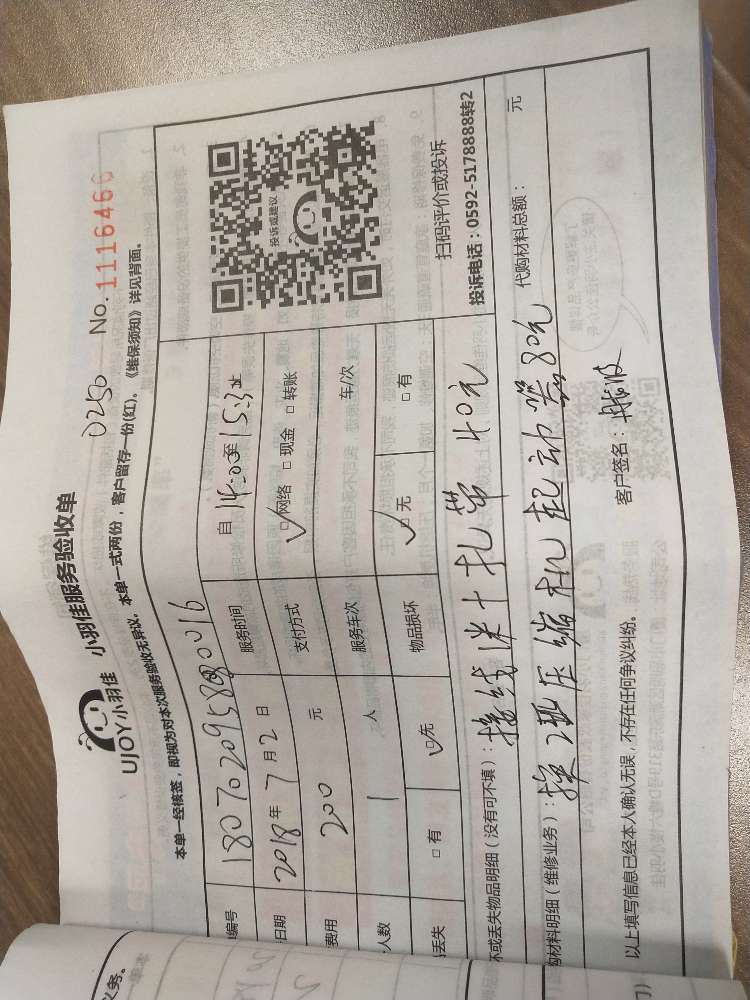 小羽佳服务验收单 0250 No.1116466
UJOY小羽佳
本单一经核签，即视为对本次服务验收无异议。本单一式两份，客户留存一份(红)。《维保须知》详见背面。
编号 180702095880016 服务时间 自 14:00 至 15:32 止
日期 2018年7月2日 支付方式 网络 现金 转账
费用 200 元 服务车次 车/次
人数 1 人
丢失 有 无 物品损坏 无 有
投诉或建议
扫码评价或投诉
投诉电话：0592-5178888转2
坏或丢失物品明细（没有可不填）：接线 扎带 40元
购材料明细（维修业务）：换 压缩机起动 80元 代购材料总额： 元
以上填写信息已经本人确认无误，不存在任何争议纠纷。 客户签名：